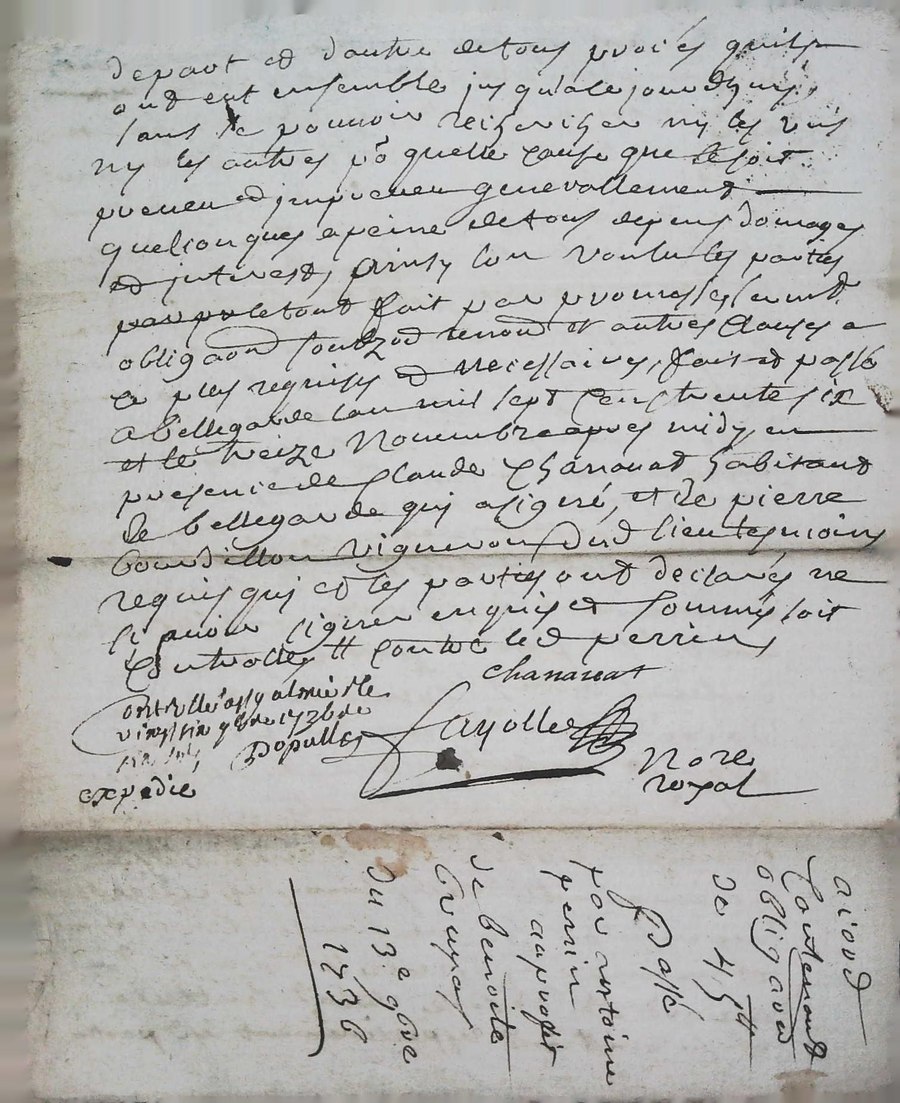 depart et dautre de tous procés quils
ont eut ensemble jusquà le jourdhuy,
sans se pouvoir rechercher ny les uns
ny les autres po quelle cause que se soit
preveu et impreveu generallement
quelconques a peine de tous depens domages
et interest, ainsy lon voulu les parties
le tout fait par promesses serment
obligaon soubz et renond et autres clauses a
ce plus requises et necessaires, fait et passé
a bellegarde lan mil sept cens trente six
et le treize Novembre apres midy en
presence de Claude Chanavat habitant
de bellegarde qui a signé, et de pierre
bourdillon vigneron dud lieu tesmoins
requis qui et les parties ont declarés ne
signer enquis et sommés soit
Controllé tt contre led perrin
Chanavat
Controllé a le
vingt six 9bre 1736
six sols
expedie
Fayolle
Nore
royal
acord
Contenant
obligaon
de 45tt
Passé
par antoine
perrin
au profit
de benoite
du 13e 9bre
1736